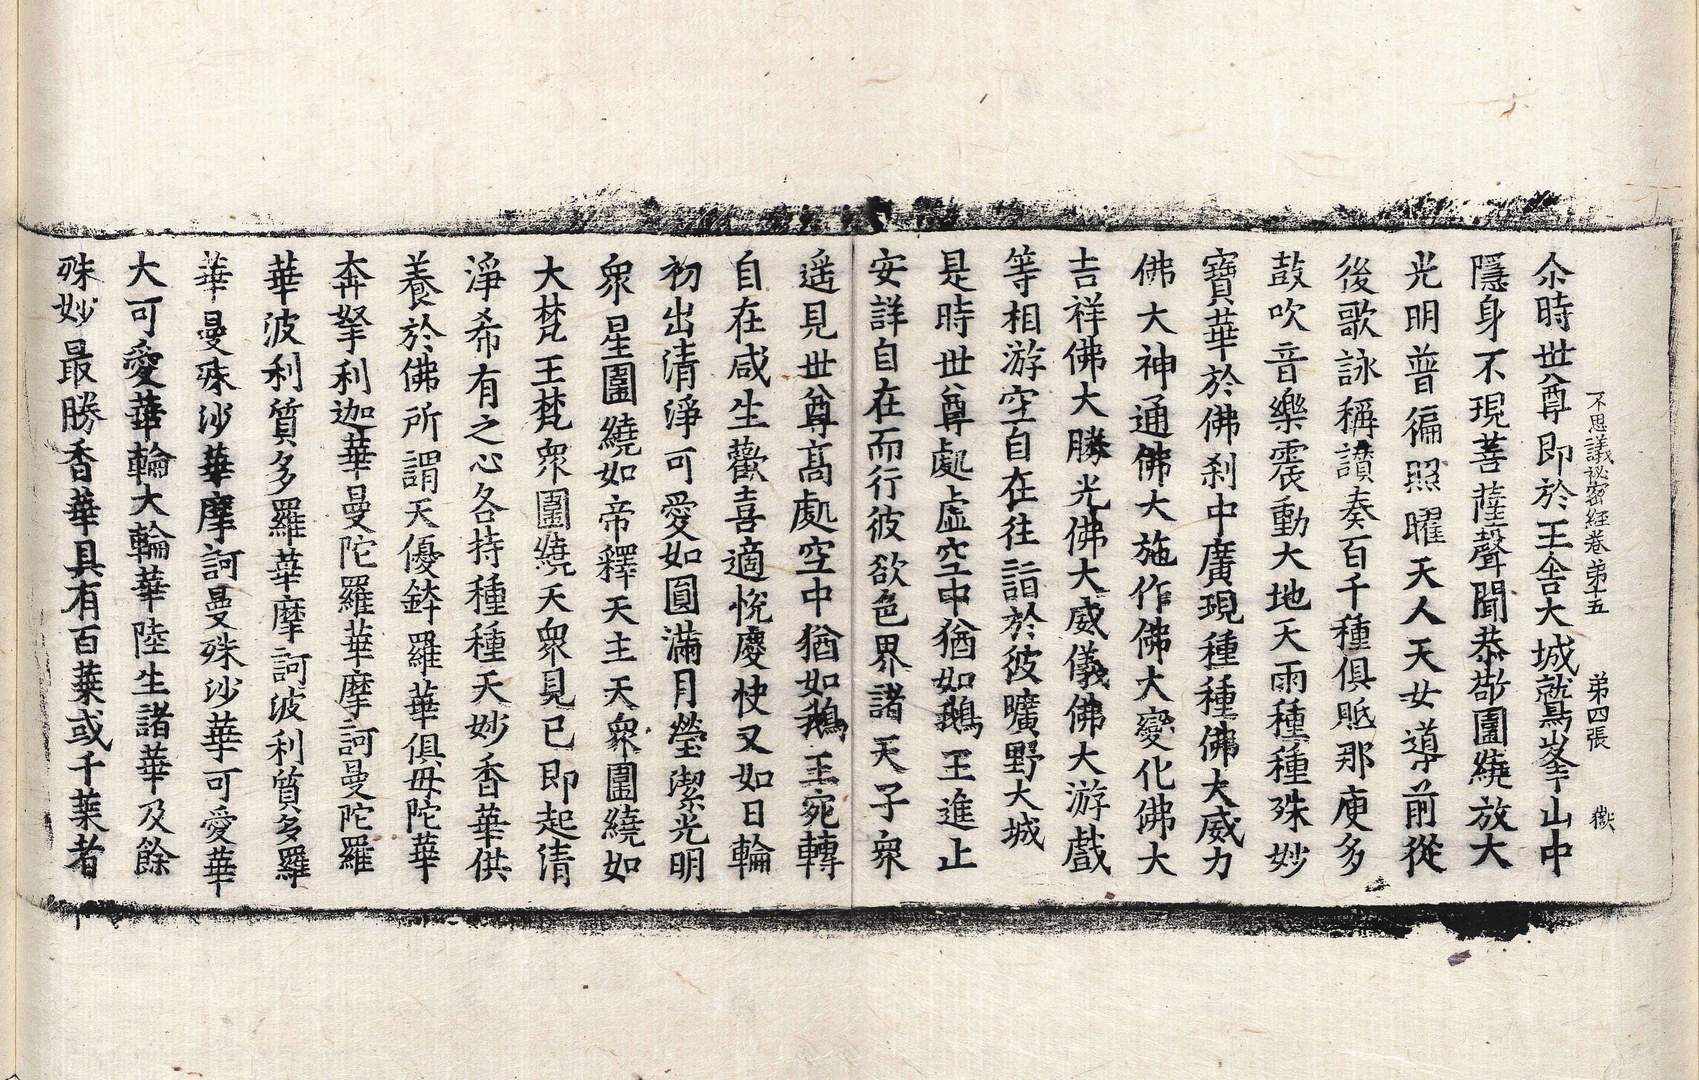 不思議祕密經卷第十五　第四張　嶽
尒時世尊即於王舍大城鷲峯山中
隱身不現菩薩聲聞恭敬圍繞放大
光明普徧照曜天人天女導前從
後歌詠稱讚奏百千種俱胝那庾多
鼓吹音樂震動大地天雨種種殊妙
寶華於佛刹中廣現種種佛大威力
佛大神通佛大施作佛大變化佛大
吉祥佛大勝光佛大威儀佛大游戲
等相游空自在往詣於彼曠野大城
是時世尊處虛空中猶如鵝王進止
安詳自在而行彼欲色界諸天子衆
遙見世尊高處空中猶如鵝王宛轉
自在咸生歡喜適悅慶快又如日輪
初出清淨可愛如圓滿月瑩潔光明
衆星圍繞如帝釋天主天衆圍繞如
大梵王梵衆圍繞天衆見已即起清
淨希有之心各持種種天妙香華供
養於佛所謂天優鉢羅華俱毋陀華
奔拏利迦華曼陀羅華摩訶曼陀羅
華波利質多羅華摩訶波利質多羅
華曼殊沙華摩訶曼殊沙華可愛華
大可愛華輪大輪華陸生諸華及餘
殊妙最勝香華具有百葉或千葉者